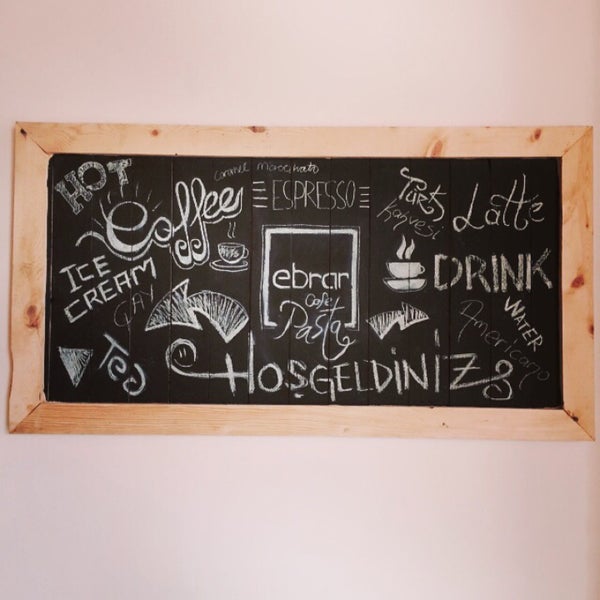 HOT
Coffee
Caramel Macchiato
ESPRESSO
Türk
Kahvesi
Latte
ICE
CREAM
ÇAY
Tea
ebrar
cafe
Pasta
DRINK
WATER
Americano
HOŞGELDİNİZ